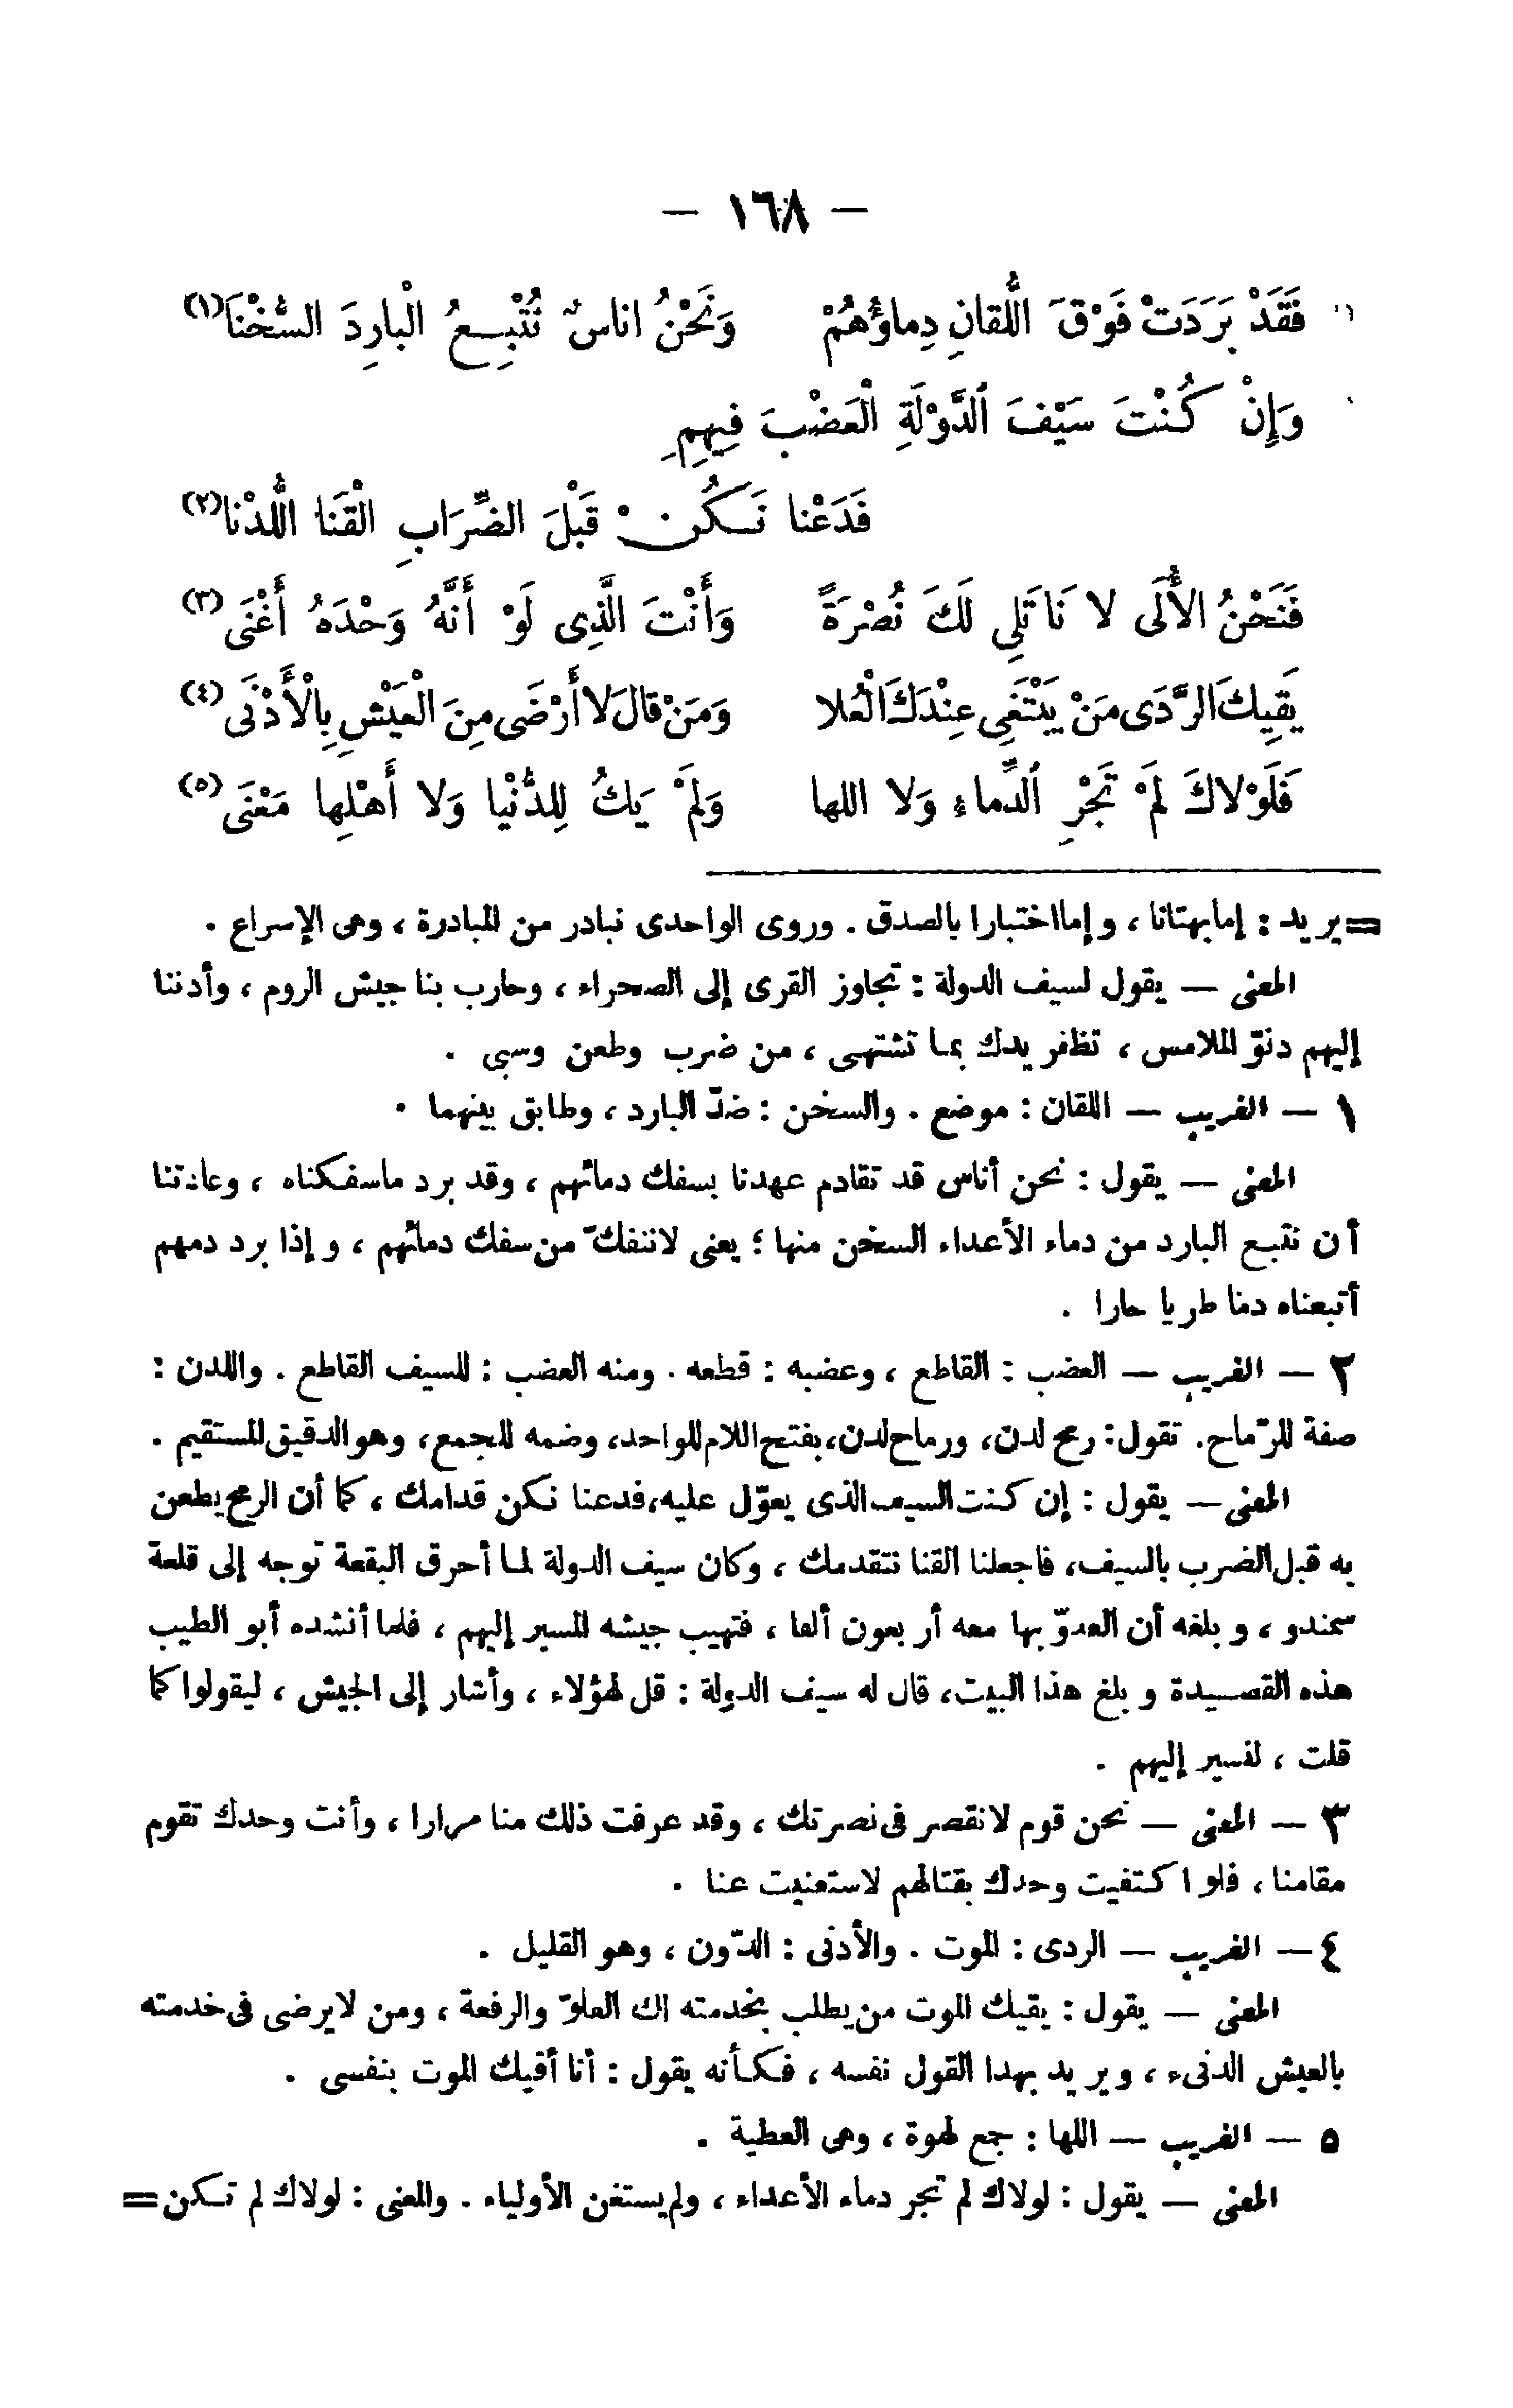 — ١٦٨ —
فَقَدْ بَرَدَتْ فَوْقَ اللُّقانِ دِماؤُهُمْ وَنَحْنُ اناسٌ نُتْبِعُ الْبارِدَ السُّخْنَا(١)
وَإِنْ كُنْتَ سَيْفَ الدَّوْلَةِ الْعَضْبَ فِيهِمِ
فَدَعْنا نَكُنْ قَبْلَ الضِّرَابِ الْقَنَا اللُّدْنا(٢)
فَنَحْنُ الأُلَى لا نَأتَلِي لَكَ نُصْرَةً وَأَنْتَ الَّذِى لَوْ أَنَّهُ وَحْدَهُ أَغْنَى(٣)
يَقِيكَ الرَّدَى مَنْ يَبْتَغِي عِنْدَكَ الْعُلا وَمَنْ قالَ لا أَرْضَى مِنَ الْعَيْشِ بِالْأَدْنَى(٤)
فَلَوْلاكَ لَمْ تَجْرِ الدِّماء وَلا اللها وَلَمْ يَكُ لِلدُّنْيا وَلا أَهْلِها مَعْنَى(٥)
= يريد : إما بهتانا ، وإما اختبارا بالصدق . وروى الواحدى نبادر من المبادرة ، وهى الإسراع .
المعنى — يقول لسيف الدولة : تجاوز القرى إلى الصحراء ، وحارب بنا جيش الروم ، وأدننا
إليهم دنوّ الملامس ، تظفر يدك بما تشتهى ، من ضرب وطعن وسبى .
١ — الغريب — اللقان : موضع . والسخن : ضدّ البارد ، وطابق بينهما .
المعنى — يقول : نحن أناس قد تقادم عهدنا بسفك دمائهم ، وقد برد ماسفكناه ، وعادتنا
أن نتبع البارد من دماء الأعداء السخن منها ؛ يعنى لاننفكّ من سفك دمائهم ، وإذا برد دمهم
أتبعناه دما طريا حارا .
٢ — الغريب — العضب : القاطع ، وعضبه : قطعه . ومنه العضب : للسيف القاطع . واللدن :
صفة للرّماح . تقول : رمح لدن ، ورماح لدن ، بفتح اللام للواحد ، وضمه للجمع ، وهو الدقيق المستقيم .
المعنى — يقول : إن كنت السيف الذى يعوّل عليه ، فدعنا نكن قدامك ، كما أن الرمح يطعن
به قبل الضرب بالسيف ، فاجعلنا القنا نتقدمك ، وكان سيف الدولة لما أحرق البقعة توجه إلى قلعة
سمندو ، وبلغه أن العدوّ بها معه أربعون ألفا ، فتهيب جيشه المسير إليهم ، فلما أنشده أبو الطيب
هذه القصيدة وبلغ هذا البيت ، قال له سيف الدولة : قل لهؤلاء ، وأشار إلى الجيش ، ليقولوا كما
قلت ، لنسير إليهم .
٣ — المعنى — نحن قوم لانقصر فى نصرتك ، وقد عرفت ذلك منا مرارا ، وأنت وحدك تقوم
مقامنا ، فلو اكتفيت وحدك بقتالهم لاستغنيت عنا .
٤ — الغريب — الردى : الموت . والأدنى : الدّون ، وهو القليل .
المعنى — يقول : يقيك الموت من يطلب بخدمته لك العلوّ والرفعة ، ومن لايرضى فى خدمته
بالعيش الدنىء ، ويريد بهذا القول نفسه ، فكأنه يقول : أنا أقيك الموت بنفسى .
٥ — الغريب — اللها : جمع لهوة ، وهى العطية .
المعنى — يقول : لولاك لم تجر دماء الأعداء ، ولم يستغن الأولياء . والمعنى : لولاك لم تكن =